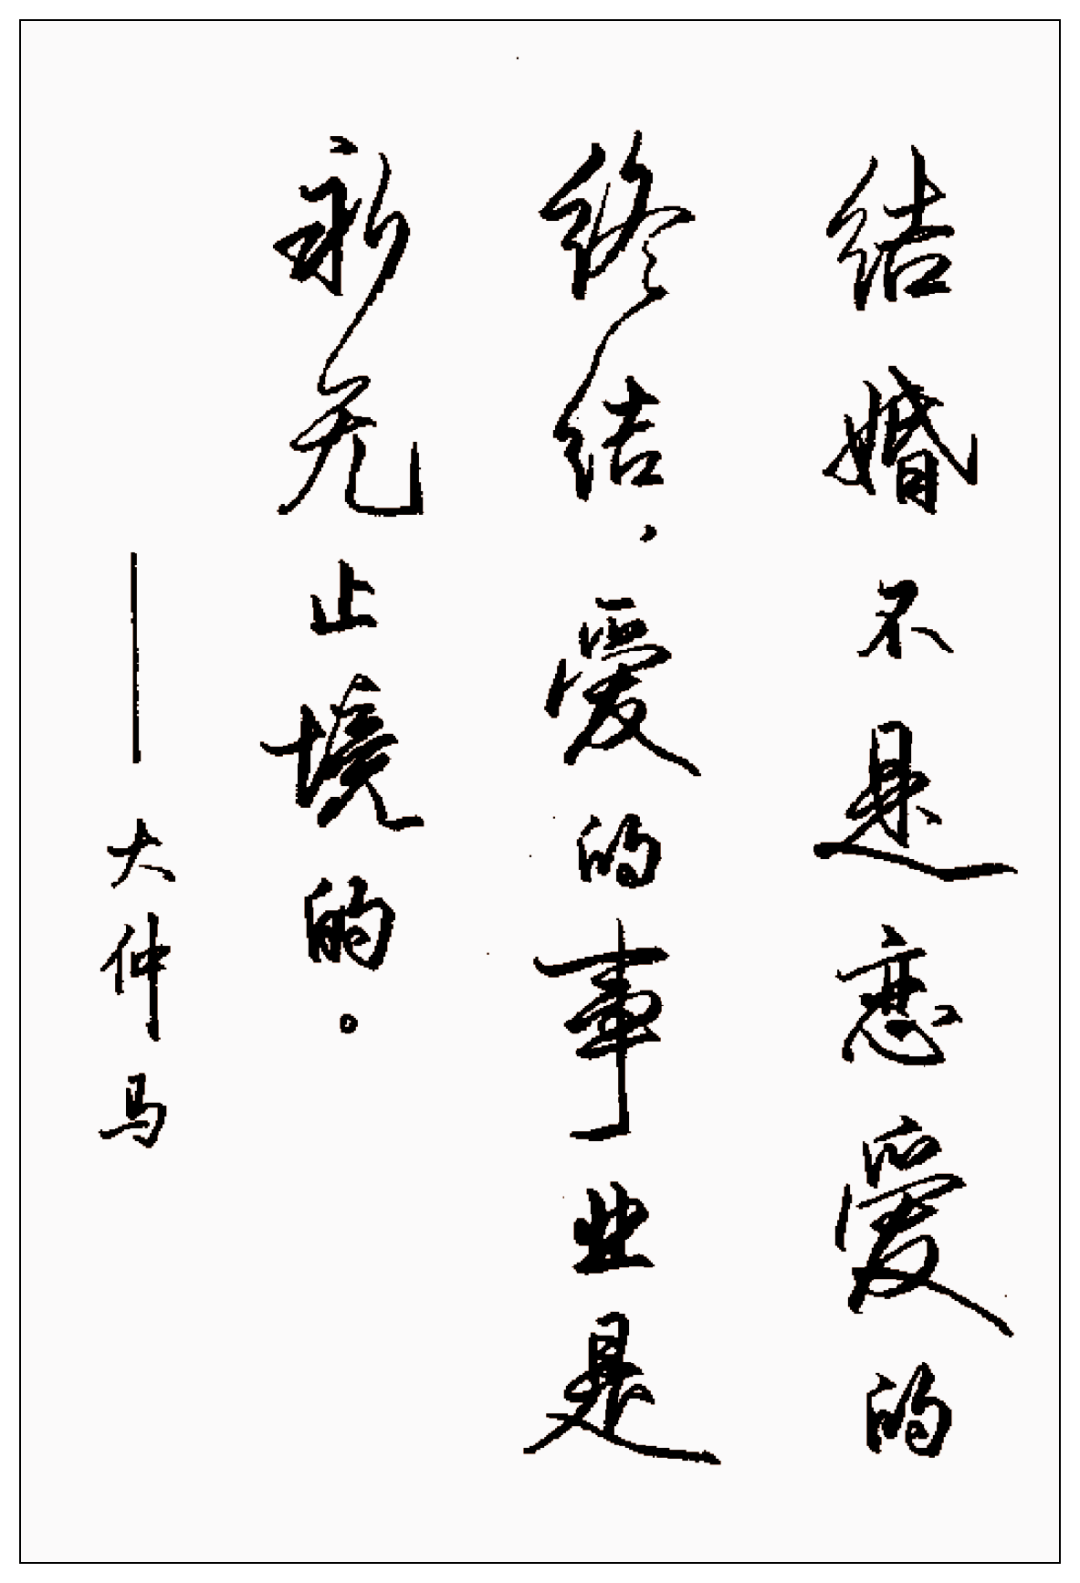 结婚不是恋爱的
终结，爱的事业是
永无止境的。
——大仲马